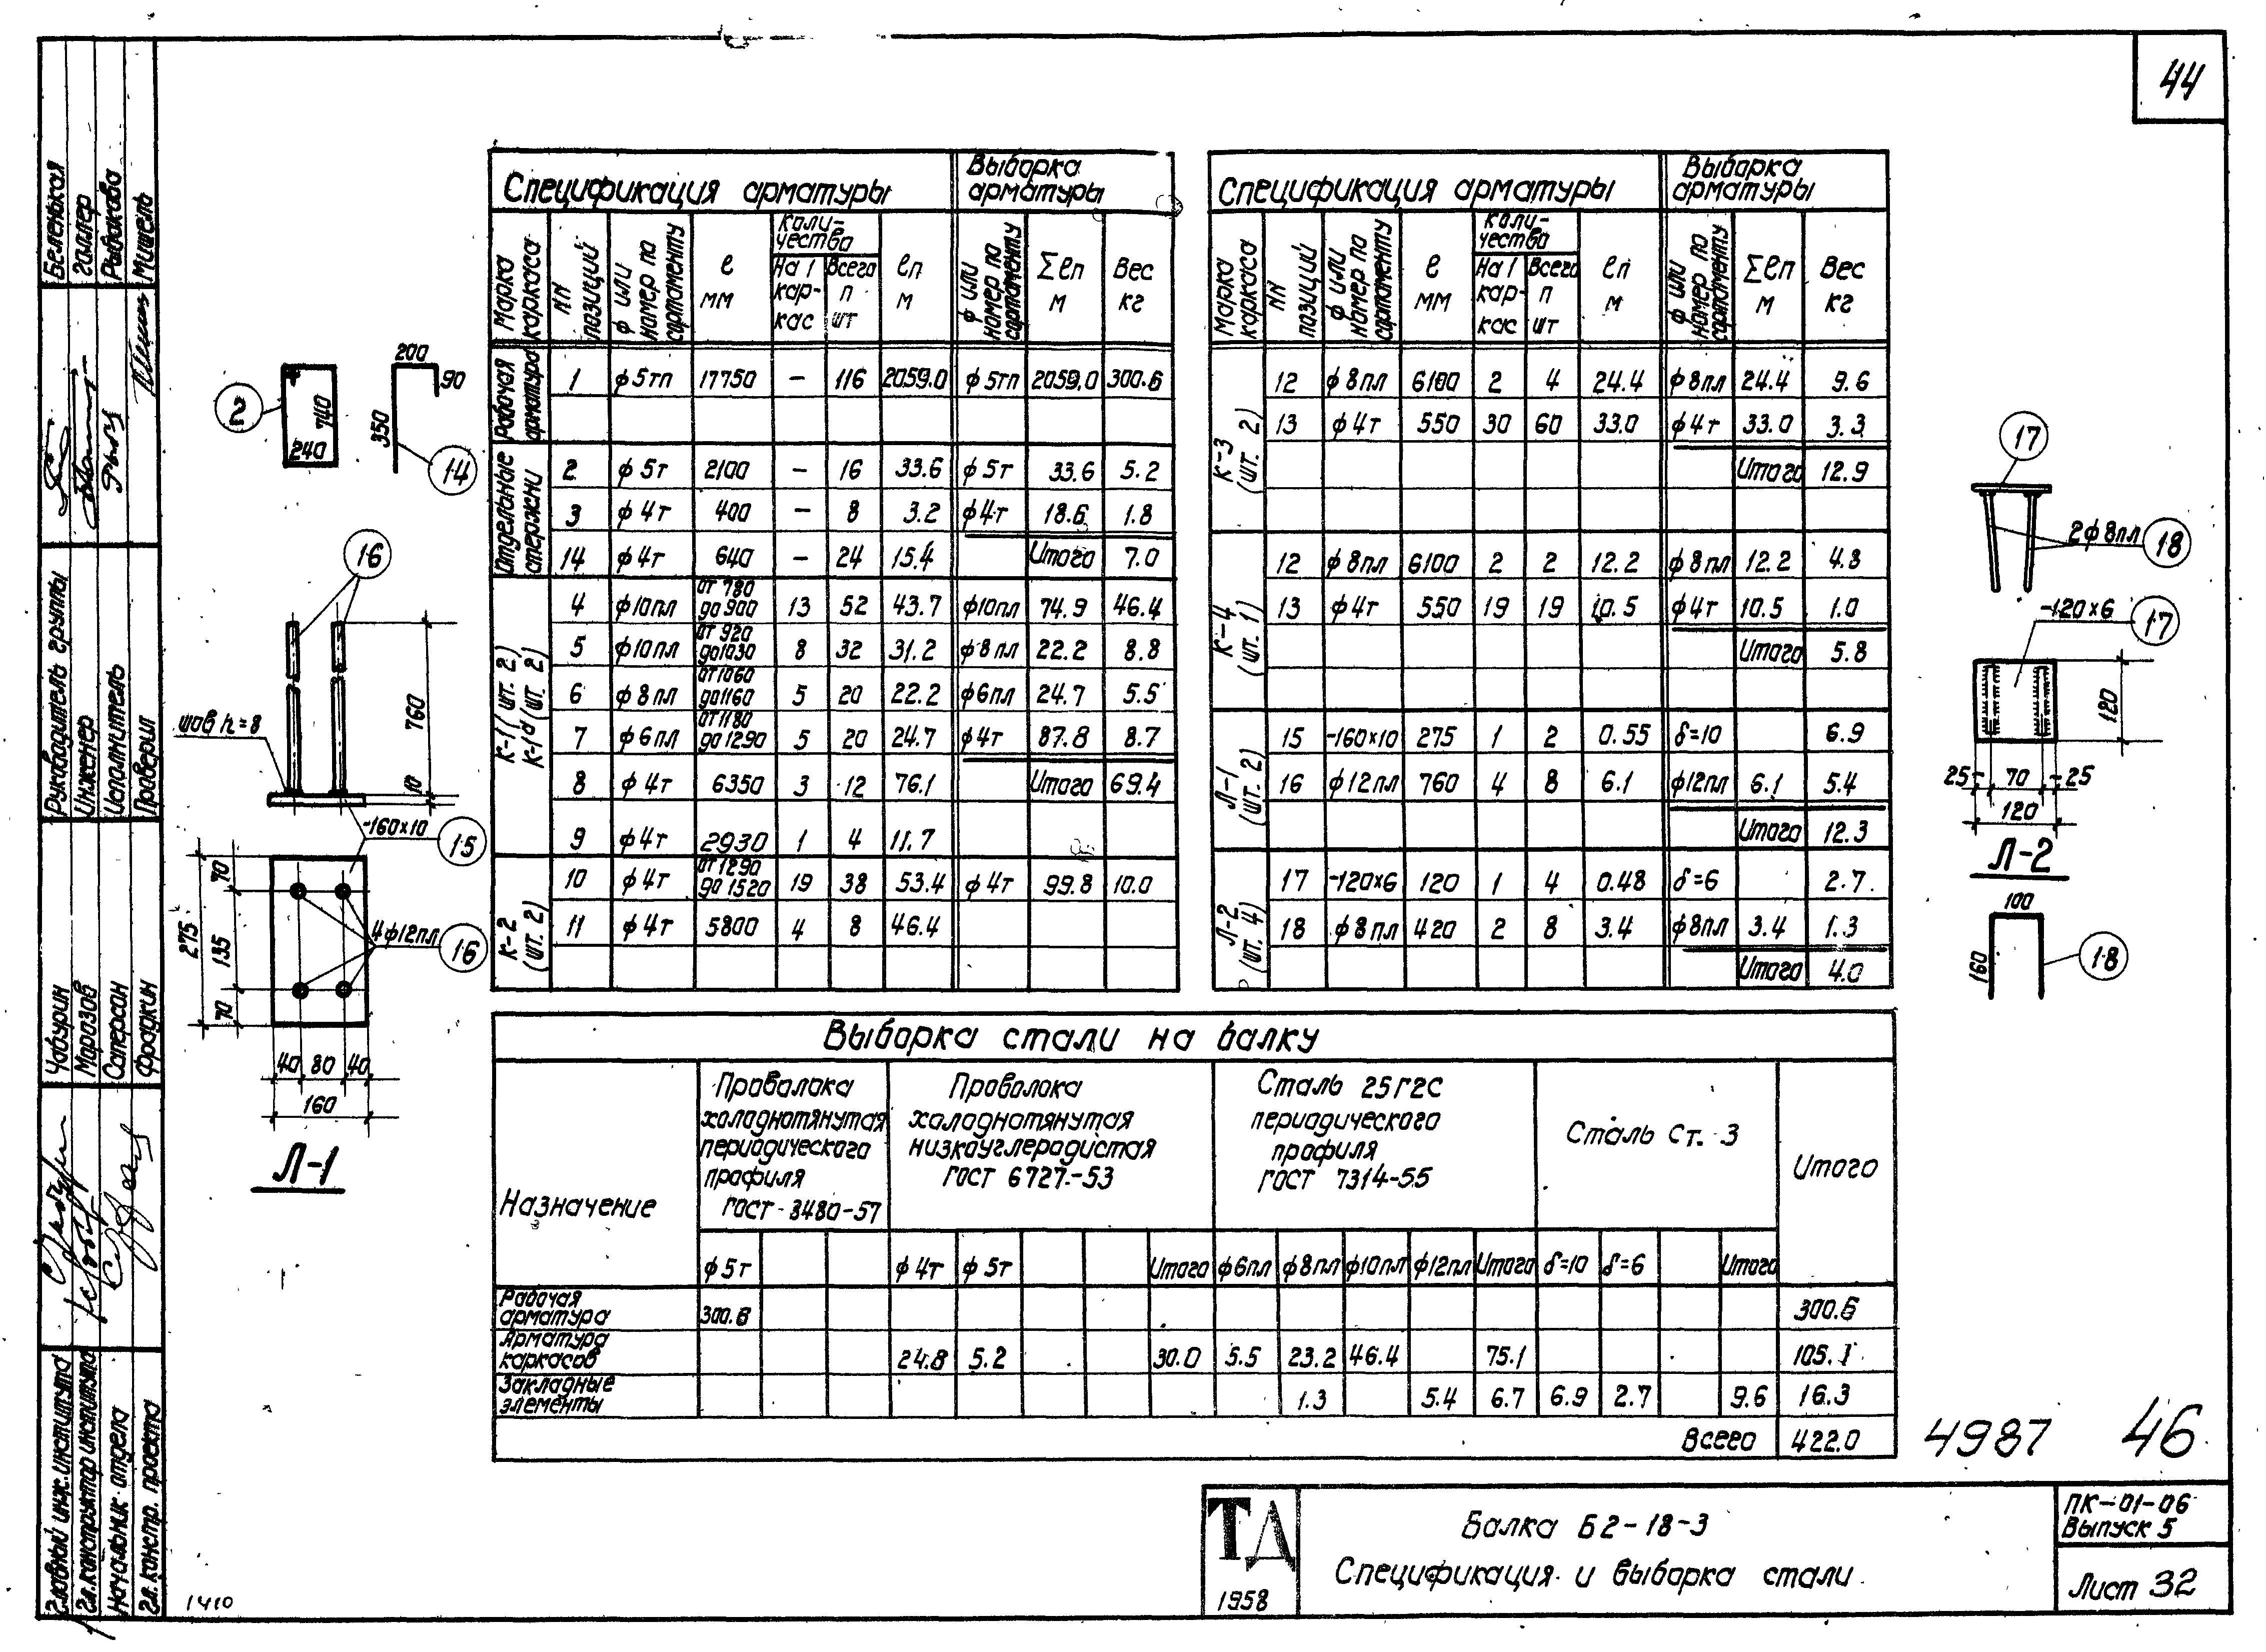 44
Спецификация арматуры
Выборка арматуры
Марка каркаса
NN позиций
ф или номер по сортаменту
ℓ мм
Количество
На 1 каркас
Всего п шт
ℓп м
ф или номер по сортаменту
Σℓп м
Вес кг
Рабочая арматура
1 ф5тп 17750 – 116 2059.0 ф5тп 2059.0 300.6
Отдельные стержни
2 ф5т 2100 – 16 33.6 ф5т 33.6 5.2
3 ф4т 400 – 8 3.2 ф4т 18.6 1.8
14 ф4т 640 – 24 15.4 Итого 7.0
К-1 (шт. 2)
К-1а (шт. 2)
4 ф10пл от 780 до 900 13 52 43.7 ф10пл 74.9 46.4
5 ф10пл от 920 до 1030 8 32 31.2 ф8пл 22.2 8.8
6 ф8пл от 1060 до 1160 5 20 22.2 ф6пл 24.7 5.5
7 ф6пл от 1180 до 1290 5 20 24.7 ф4т 87.8 8.7
8 ф4т 6350 3 12 76.1 Итого 69.4
9 ф4т 2930 1 4 11.7
К-2 (шт. 2)
10 ф4т от 1290 до 1520 19 38 53.4 ф4т 99.8 10.0
11 ф4т 5800 4 8 46.4
Спецификация арматуры
Выборка арматуры
Марка каркаса
NN позиций
ф или номер по сортаменту
ℓ мм
Количество
На 1 каркас
Всего п шт
ℓп м
ф или номер по сортаменту
Σℓп м
Вес кг
К-3 (шт. 2)
12 ф8пл 6100 2 4 24.4 ф8пл 24.4 9.6
13 ф4т 550 30 60 33.0 ф4т 33.0 3.3
Итого 12.9
К-4 (шт. 1)
12 ф8пл 6100 2 2 12.2 ф8пл 12.2 4.8
13 ф4т 550 19 19 10.5 ф4т 10.5 1.0
Итого 5.8
Л-1 (шт. 2)
15 -160×10 275 1 2 0.55 δ=10 6.9
16 ф12пл 760 4 8 6.1 ф12пл 6.1 5.4
Итого 12.3
Л-2 (шт. 4)
17 -120×6 120 1 4 0.48 δ=6 2.7
18 ф8пл 420 2 8 3.4 ф8пл 3.4 1.3
Итого 4.0
2
740
240
200
90
350
14
16
шов h=8
760
10
-160×10
15
70
135
70
275
4ф12пл
16
40 80 40
160
Л-1
17
2ф8пл
18
-120×6
17
120
25 70 25
120
Л-2
100
160
18
Выборка стали на балку
Назначение
Проволока холоднотянутая периодического профиля ГОСТ 8480-57
Проволока холоднотянутая низкоуглеродистая ГОСТ 6727-53
Сталь 25Г2С периодического профиля ГОСТ 7314-55
Сталь Ст. 3
Итого
ф5т ф4т ф5т Итого ф6пл ф8пл ф10пл ф12пл Итого δ=10 δ=6 Итого
Рабочая арматура 300.6 300.6
Арматура каркасов 24.8 5.2 30.0 5.5 23.2 46.4 75.1 105.1
Закладные элементы 1.3 5.4 6.7 6.9 2.7 9.6 16.3
Всего 422.0
4987 46
ТД
1958
Балка Б2-18-3
Спецификация и выборка стали
ПК-01-06
Выпуск 5
Лист 32
1410
Беленькая
Галлер
Рыбакова
Мишель
Руководитель группы
Инженер
Исполнитель
Проверил
Чабурин
Морозов
Сатеран
Фрадкин
Главный инж. института
Гл. конструктор института
Начальник отдела
Гл. констр. проекта